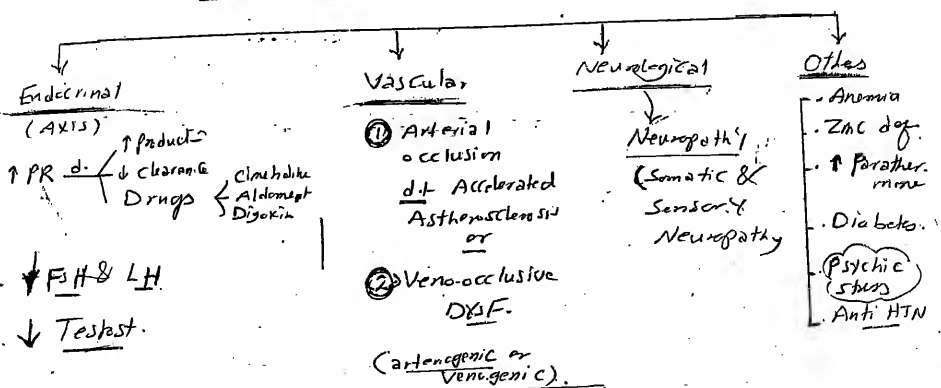 Endocrinal
(AXIS)
↑ PR d.t
↑ Product=
↓ Clearance
Drugs
Cimetidine
Aldomet
Digoxin
↓ FSH & LH
↓ Testost.
Vascular
① Arterial
occlusion
d.t Accelerated
Astherosclerosis
or
② Veno-occlusive
DYSF.
(arteriogenic or
Venogenic).
Neurological
Neuropathy
(Somatic &
Sensory
Neuropathy
Othes
. Anemia
. Zinc def.
. ↑ Parather.
mone
. Diabetes.
. Psychic
stress
. Anti HTN